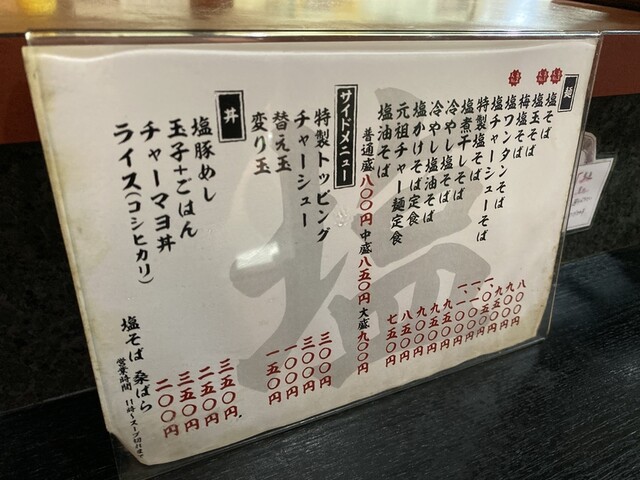 麺
塩そば 八〇〇円
塩玉そば 九〇〇円
梅塩そば 九〇〇円
塩ワンタンそば
塩チャーシューそば
特製塩そば
塩煮干しそば
冷やし塩そば
冷やし塩油そば
塩かけそば定食 八五〇円
元祖チャー麺定食 七五〇円
塩油そば
普通盛八〇〇円 中盛八五〇円 大盛九〇〇円
サイドメニュー
特製トッピング 三〇〇円
チャーシュー 三〇〇円
替え玉 一〇〇円
変り玉 一五〇円
丼
塩豚めし 三五〇円
玉子+ごはん 二五〇円
チャーマヨ丼 三五〇円
ライス(コシヒカリ) 二〇〇円
塩そば 桑ばら
営業時間 11時〜スープ切れまで
塩